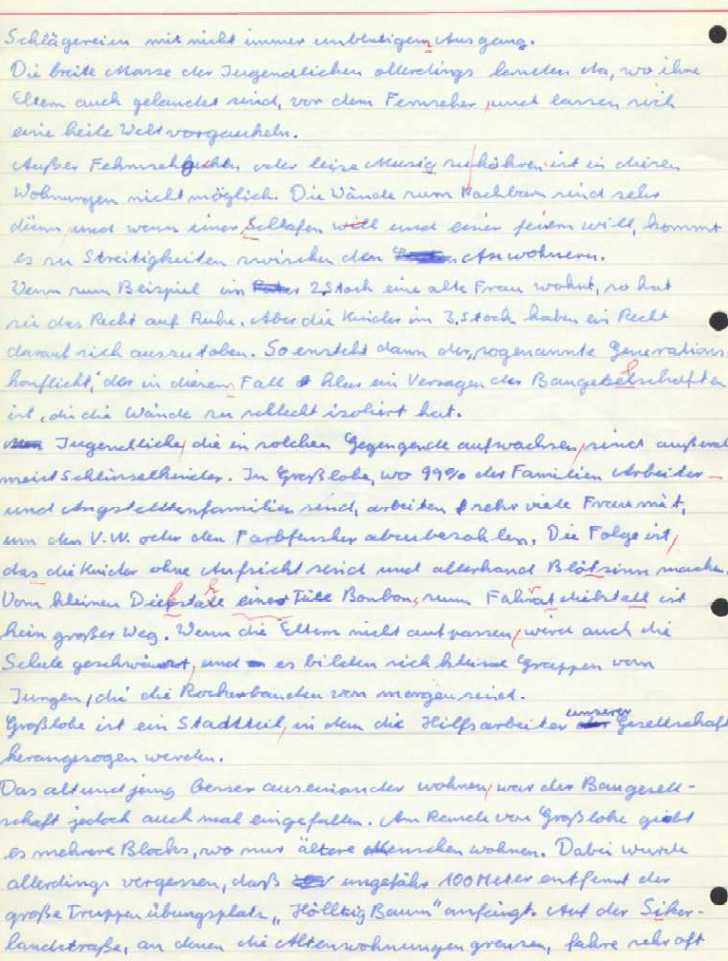 Schlägereien mit nicht immer unblutigem Ausgang.
Die breite Masse der Jugendlichen allerdings landen da, wo ihre
Eltern auch gelandet sind, vor dem Fernseher, und lassen sich
eine heile Welt vorgaukeln.
Außer Fehrnseh oder leise Musig zuhöhren ist in diesen
Wohnungen nicht möglich. Die Wände zum Nachbarn sind sehr
dünn, und wenn einer Schlafen will und einer feiern will, kommt
es zu Streitigkeiten zwischen den Anwohnern.
Wenn zum Beispiel im 2. Stock eine alte Frau wohnt, so hat
sie das Recht auf Ruhe. Aber die Kinder im 3. Stock haben ein Recht
darauf sich auszutoben. So ensteht dann der „sogenannte Generations
konflicht", der in diesem Fall klar ein Versagen der Baugesellschaften
ist, die die Wände zu schlecht isoliert hat.
Jugendliche, die in solchen Gegengende aufwachsen, sind
meist Schlüsselkinder. In Großlohe, wo 99% der Familien Arbeiter-
und Angstelltenfamilien sind, arbeiten sehr viele Frauen mit,
um den V.W. oder den Farbfernsher abzubezahlen. Die Folge ist,
das die Kinder ohne Aufsicht seind und allerhand Blötsinn machen.
Vom kleinen Diebstall einer Tüte Bonbon, zum Fahrat diebstall ist
kein großer Weg. Wenn die Eltern nicht aufpassen, wird auch die
Schule geschwänzt, und es bilden sich kleine Gruppen von
Jungen, die die Rockerbanden von morgen seind.
Großlohe ist ein Stadtteil, in dem die Hilfsarbeiter unserer Gesellschaft
herangezogen werden.
Das alt und jung besser auseinander wohnen, war der Baugesell-
schaft jedoch auch mal eingefallen. Am Rande von Großlohe giebt
es mehrere Blocks, wo nur ältere Menschen wohnen. Dabei wurde
allerdings vergessen, daß ungefähr 100 Meter entfernt der
große Truppenübungsplatz „Höltigbaum" anfängt. Auf der Siker-
landstraße, an denen die Altenwohnungen grenzen, fahre sehr oft